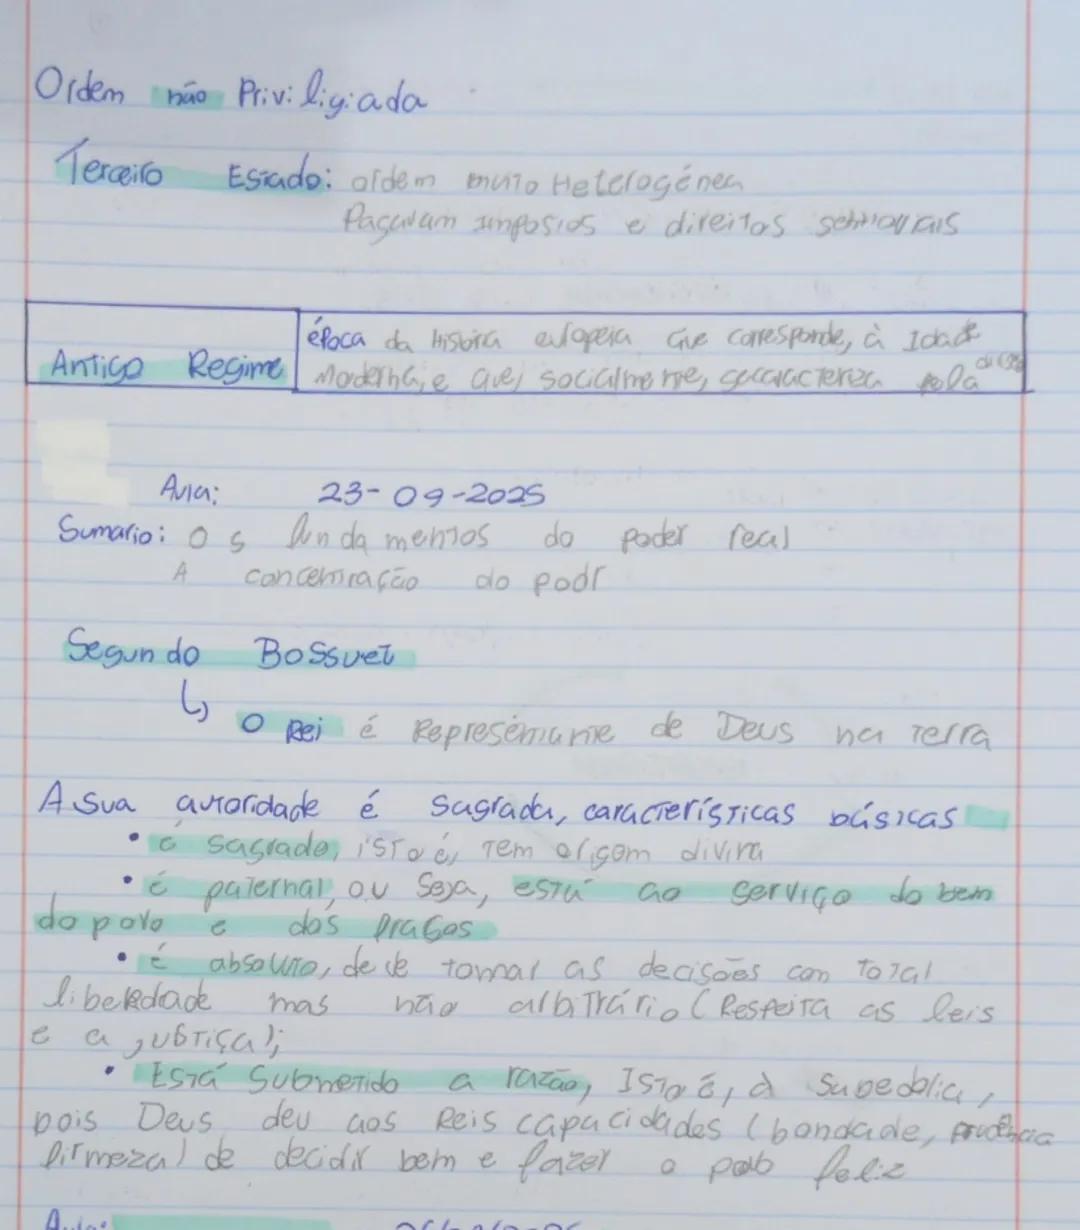 Ordem não Priviligiada
Terceiro Estado: ordem muito Heterogénea
Pagavam impostos e direitos senhoriais
época da história europeia que corresponde, à Idade
Antigo Regime Moderna, e que, socialmente, secaracteriza pela
Aula: 23-09-2025
Sumario: Os fundamentos do poder real
A concentração do podr
Segundo Bossuet
↳ O Rei é Representante de Deus na terra
A sua autoridade é sagrada, características básicas
• é sagrado, isto é, tem origem divina
• é paternal, ou seja, está ao serviço do bem
do povo e dos
• é absoluto, deve tomar as decisões com total
liberdade mas não arbitrário (Respeita as leis
e a justiça);
• Está Submetido a razão, Isto é, à
pois Deus deu aos Reis capacidades (bondade, prudência
firmeza) de decidir bem e fazer o povo feliz
Aula: